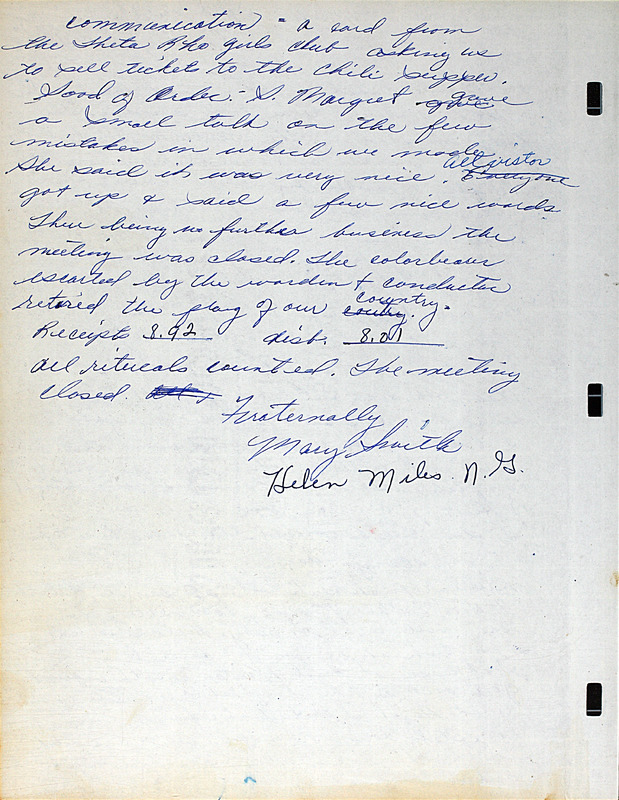 communication - a card from
the Theta Rho girls club asking us
to sell tickets to the chili supper.
Good of Order. - S. Margret gave gave
a small talk on the few
mistakes in which we made.
She said it was very nice. Everyone all vistor
got up & said a few nice words
There being no further business the
meeting was closed. The colorbearer
escorted by the warden & conductor
retired the flag of our coutry. country.
Receipts 8.92 disb. 8.01
All rituals counted. The meeting
closed.
Fraternally
Mary Smith
Helen Miles N.G.